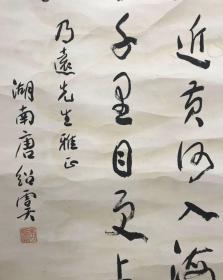 近黄河入海
千里目更上
乃遠先生雅正
湖南唐紹虞